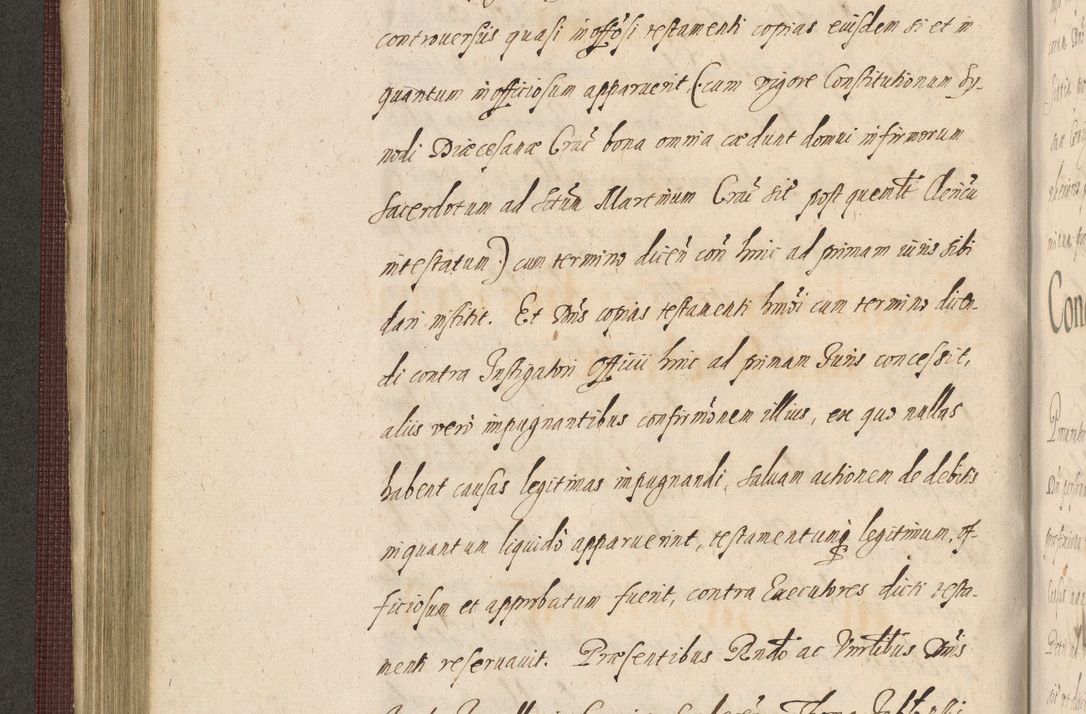 controuersiis quasi inoffõsi testamenti copias eiusdem si et in
quantum inofficiosum apparuerit (cum vigore Constitutionum Sy-
nodi Diæcesanæ Crac̃ bona omnia cædunt domui infirmorum
Sacerdotum ad Sctũm Martinum Crac̃ sit̃ post quemlt̃ Clericũ
intestatum) cum termino diceñ coñ hinc ad primam iuris sibi
dari institit. Et Dñs copias testamenti hmõi cum termino dicen-
di contra Instigatori Officii hinc ad primam Juris concessit,
aliis verò impugnantibus confirmõnem illius, ex quo nullas
habent causas legitimas impugnandi, saluam actionem de debitis
inquantum liquidò apparuerint, testamentumq̃ legitimum, of-
ficiosum et approbatum fuerit, contra Executores dicti testa-
menti reseruauit. Præsentibus Rndo ac Vnrtlibus Dñis